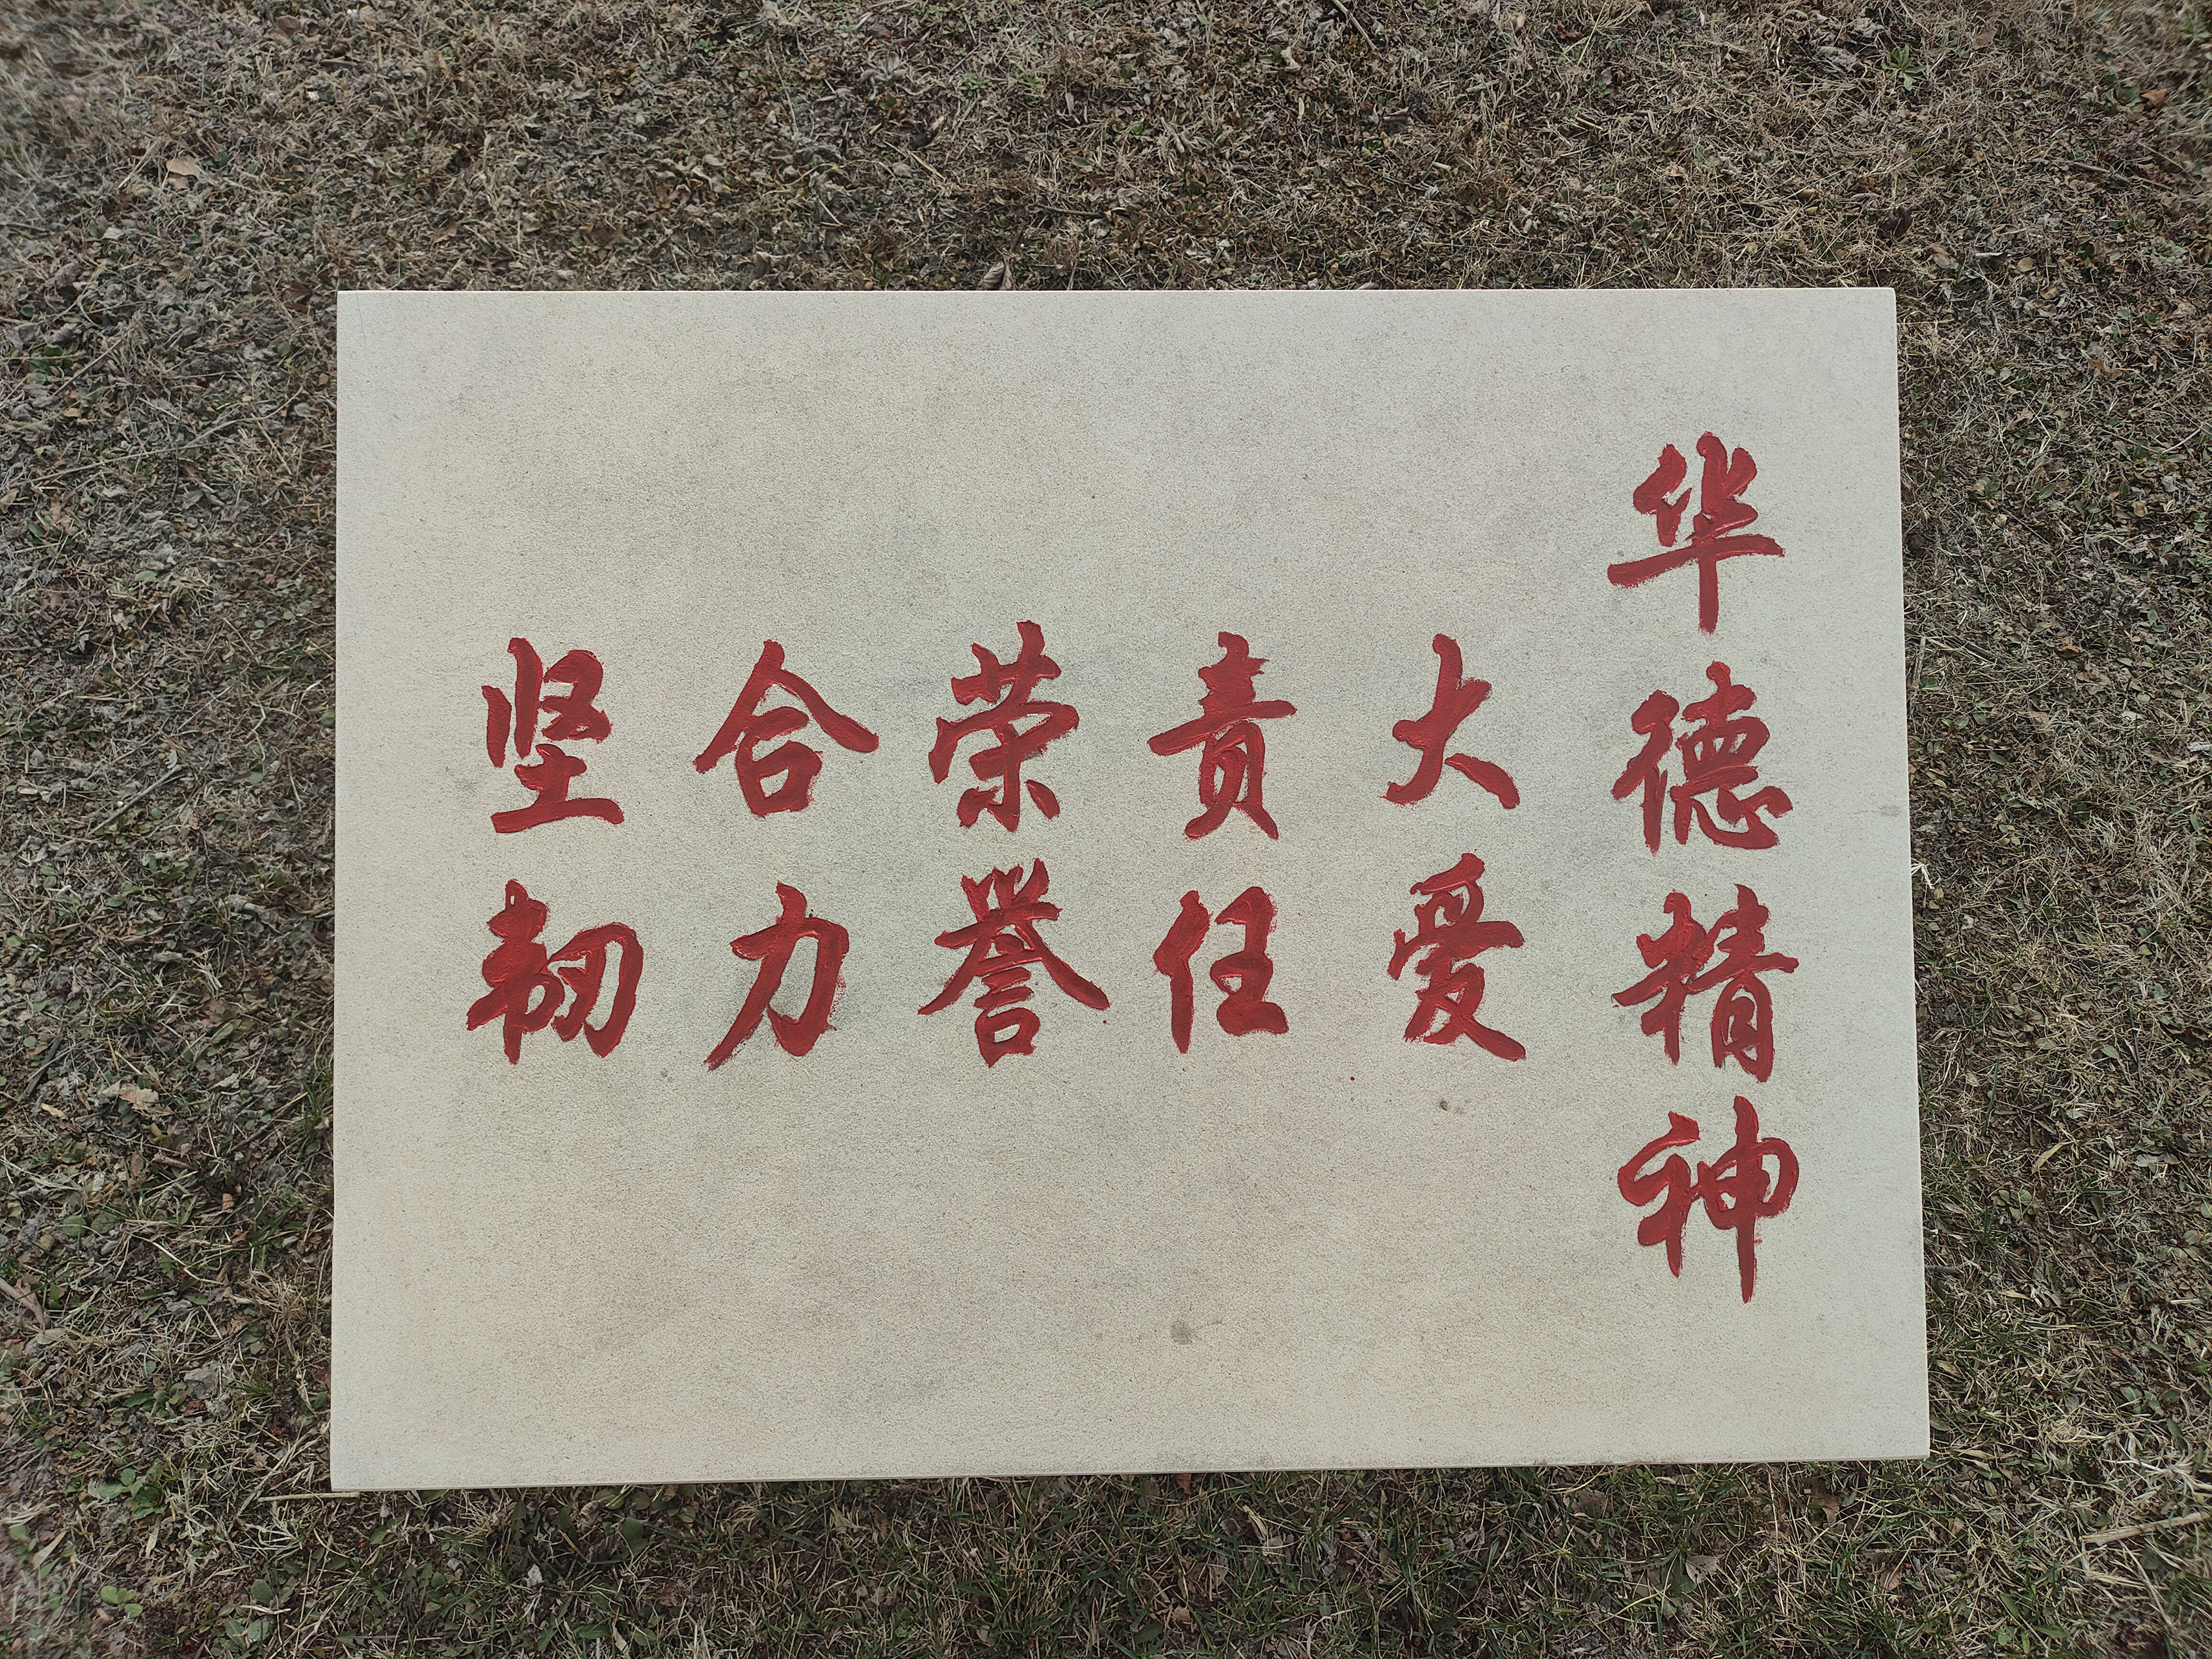 华德精神
大爱
责任
荣誉
合力
坚韧